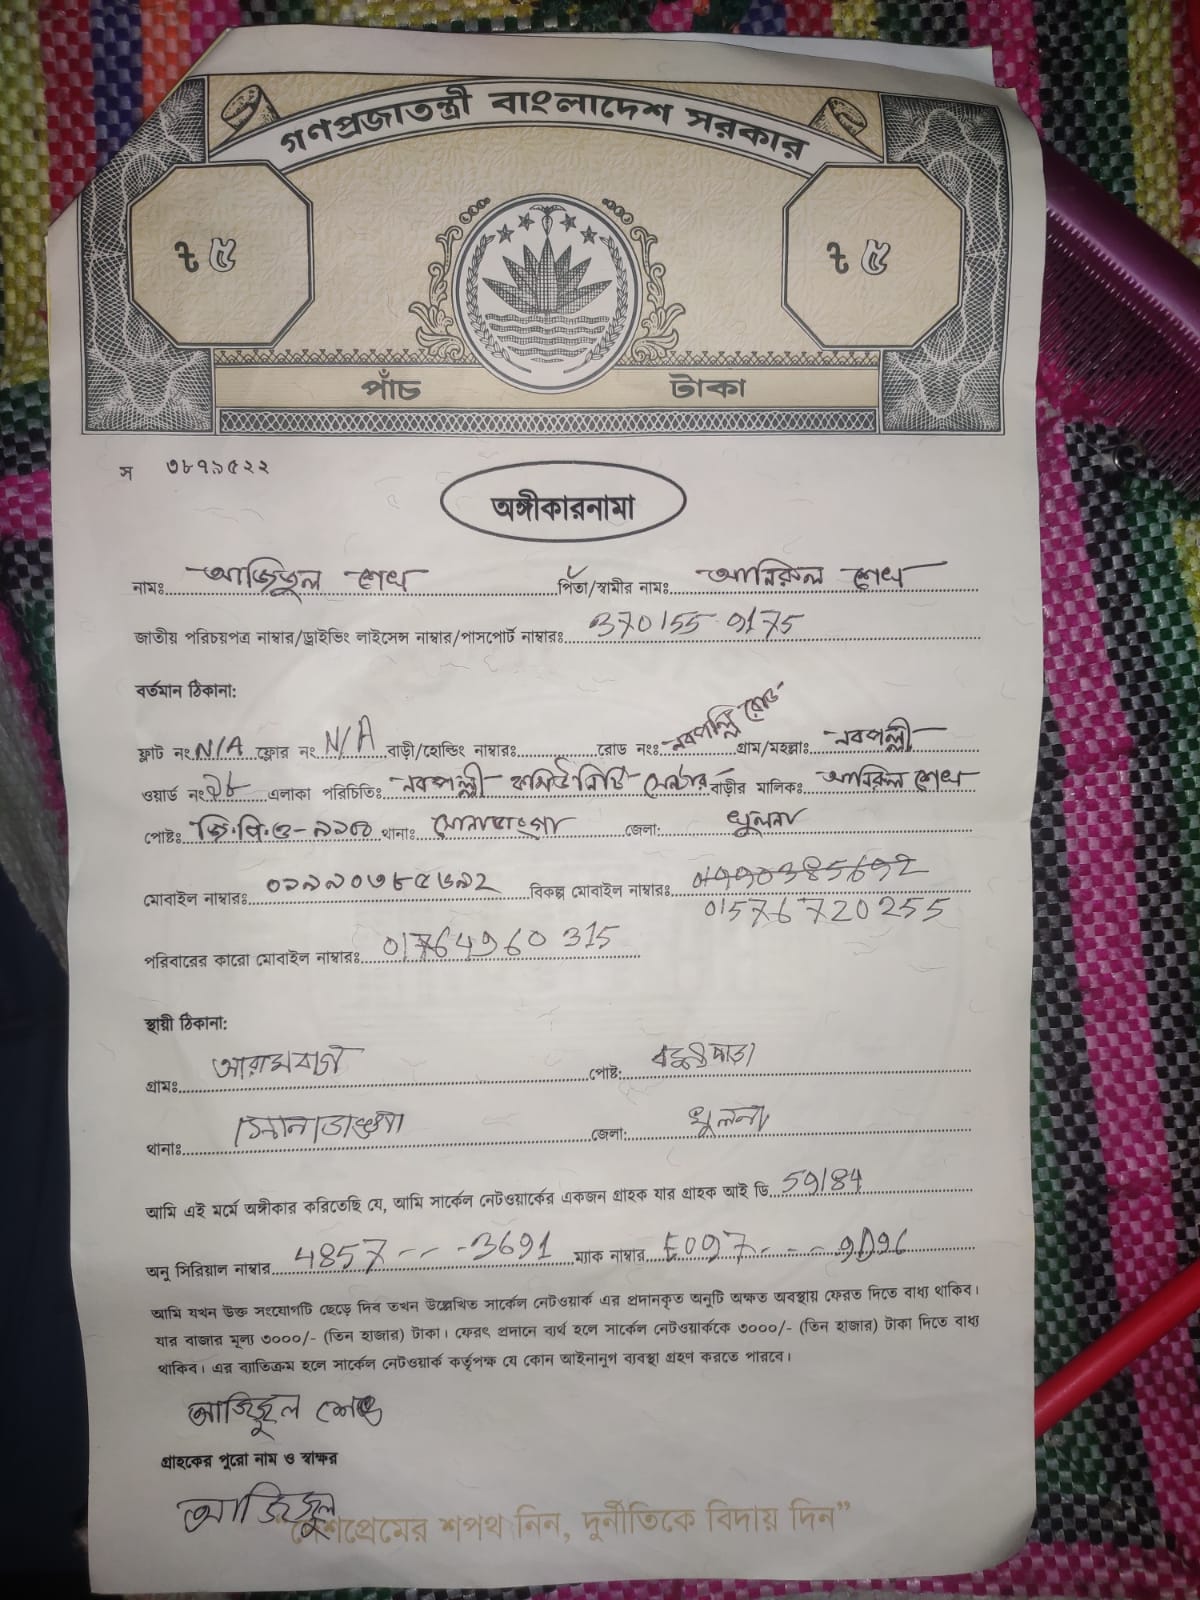 গণপ্রজাতন্ত্রী বাংলাদেশ সরকার
৳ ৫ ৳ ৫
পাঁচ টাকা
স ৩৮৭৯৫২২
অঙ্গীকারনামা
নামঃ আজিজুল শেখ পিতা/স্বামীর নামঃ আমিরুল শেখ
জাতীয় পরিচয়পত্র নাম্বার/ড্রাইভিং লাইসেন্স নাম্বার/পাসপোর্ট নাম্বারঃ 370155 9175
বর্তমান ঠিকানা:
ফ্লাট নং N/A ফ্লোর নং N/A বাড়ী/হোল্ডিং নাম্বারঃ রোড নংঃ নবপল্লি রোড গ্রাম/মহল্লাঃ নবপল্লী
ওয়ার্ড নং ১৮ এলাকা পরিচিতিঃ নবপল্লী কমিউনিটি সেন্টার বাড়ীর মালিকঃ আমিরুল শেখ
পোষ্টঃ জি.পি.ও-৯১০০ থানাঃ সোনাডাঙ্গা জেলা: খুলনা
মোবাইল নাম্বারঃ ০১৯৯০৩৮৫৬৯২ বিকল্প মোবাইল নাম্বারঃ 01990385692
01576720255
পরিবারের কারো মোবাইল নাম্বারঃ 01764960315
স্থায়ী ঠিকানা:
গ্রামঃ আরামবাগ পোষ্ট:
থানাঃ সোনাডাঙ্গা জেলা: খুলনা
আমি এই মর্মে অঙ্গীকার করিতেছি যে, আমি সার্কেল নেটওয়ার্কের একজন গ্রাহক যার গ্রাহক আই ডি 59184
অনু সিরিয়াল নাম্বার 4857----3691 ম্যাক নাম্বার E097----9096
আমি যখন উক্ত সংযোগটি ছেড়ে দিব তখন উল্লেখিত সার্কেল নেটওয়ার্ক এর প্রদানকৃত অনুটি অক্ষত অবস্থায় ফেরত দিতে বাধ্য থাকিব।
যার বাজার মূল্য ৩০০০/- (তিন হাজার) টাকা। ফেরৎ প্রদানে ব্যর্থ হলে সার্কেল নেটওয়ার্ককে ৩০০০/- (তিন হাজার) টাকা দিতে বাধ্য
থাকিব। এর ব্যাতিক্রম হলে সার্কেল নেটওয়ার্ক কর্তৃপক্ষ যে কোন আইনানুগ ব্যবস্থা গ্রহণ করতে পারবে।
আজিজুল শেখ
গ্রাহকের পুরো নাম ও স্বাক্ষর
আজিজুল
“দেশপ্রেমের শপথ নিন, দুর্নীতিকে বিদায় দিন”